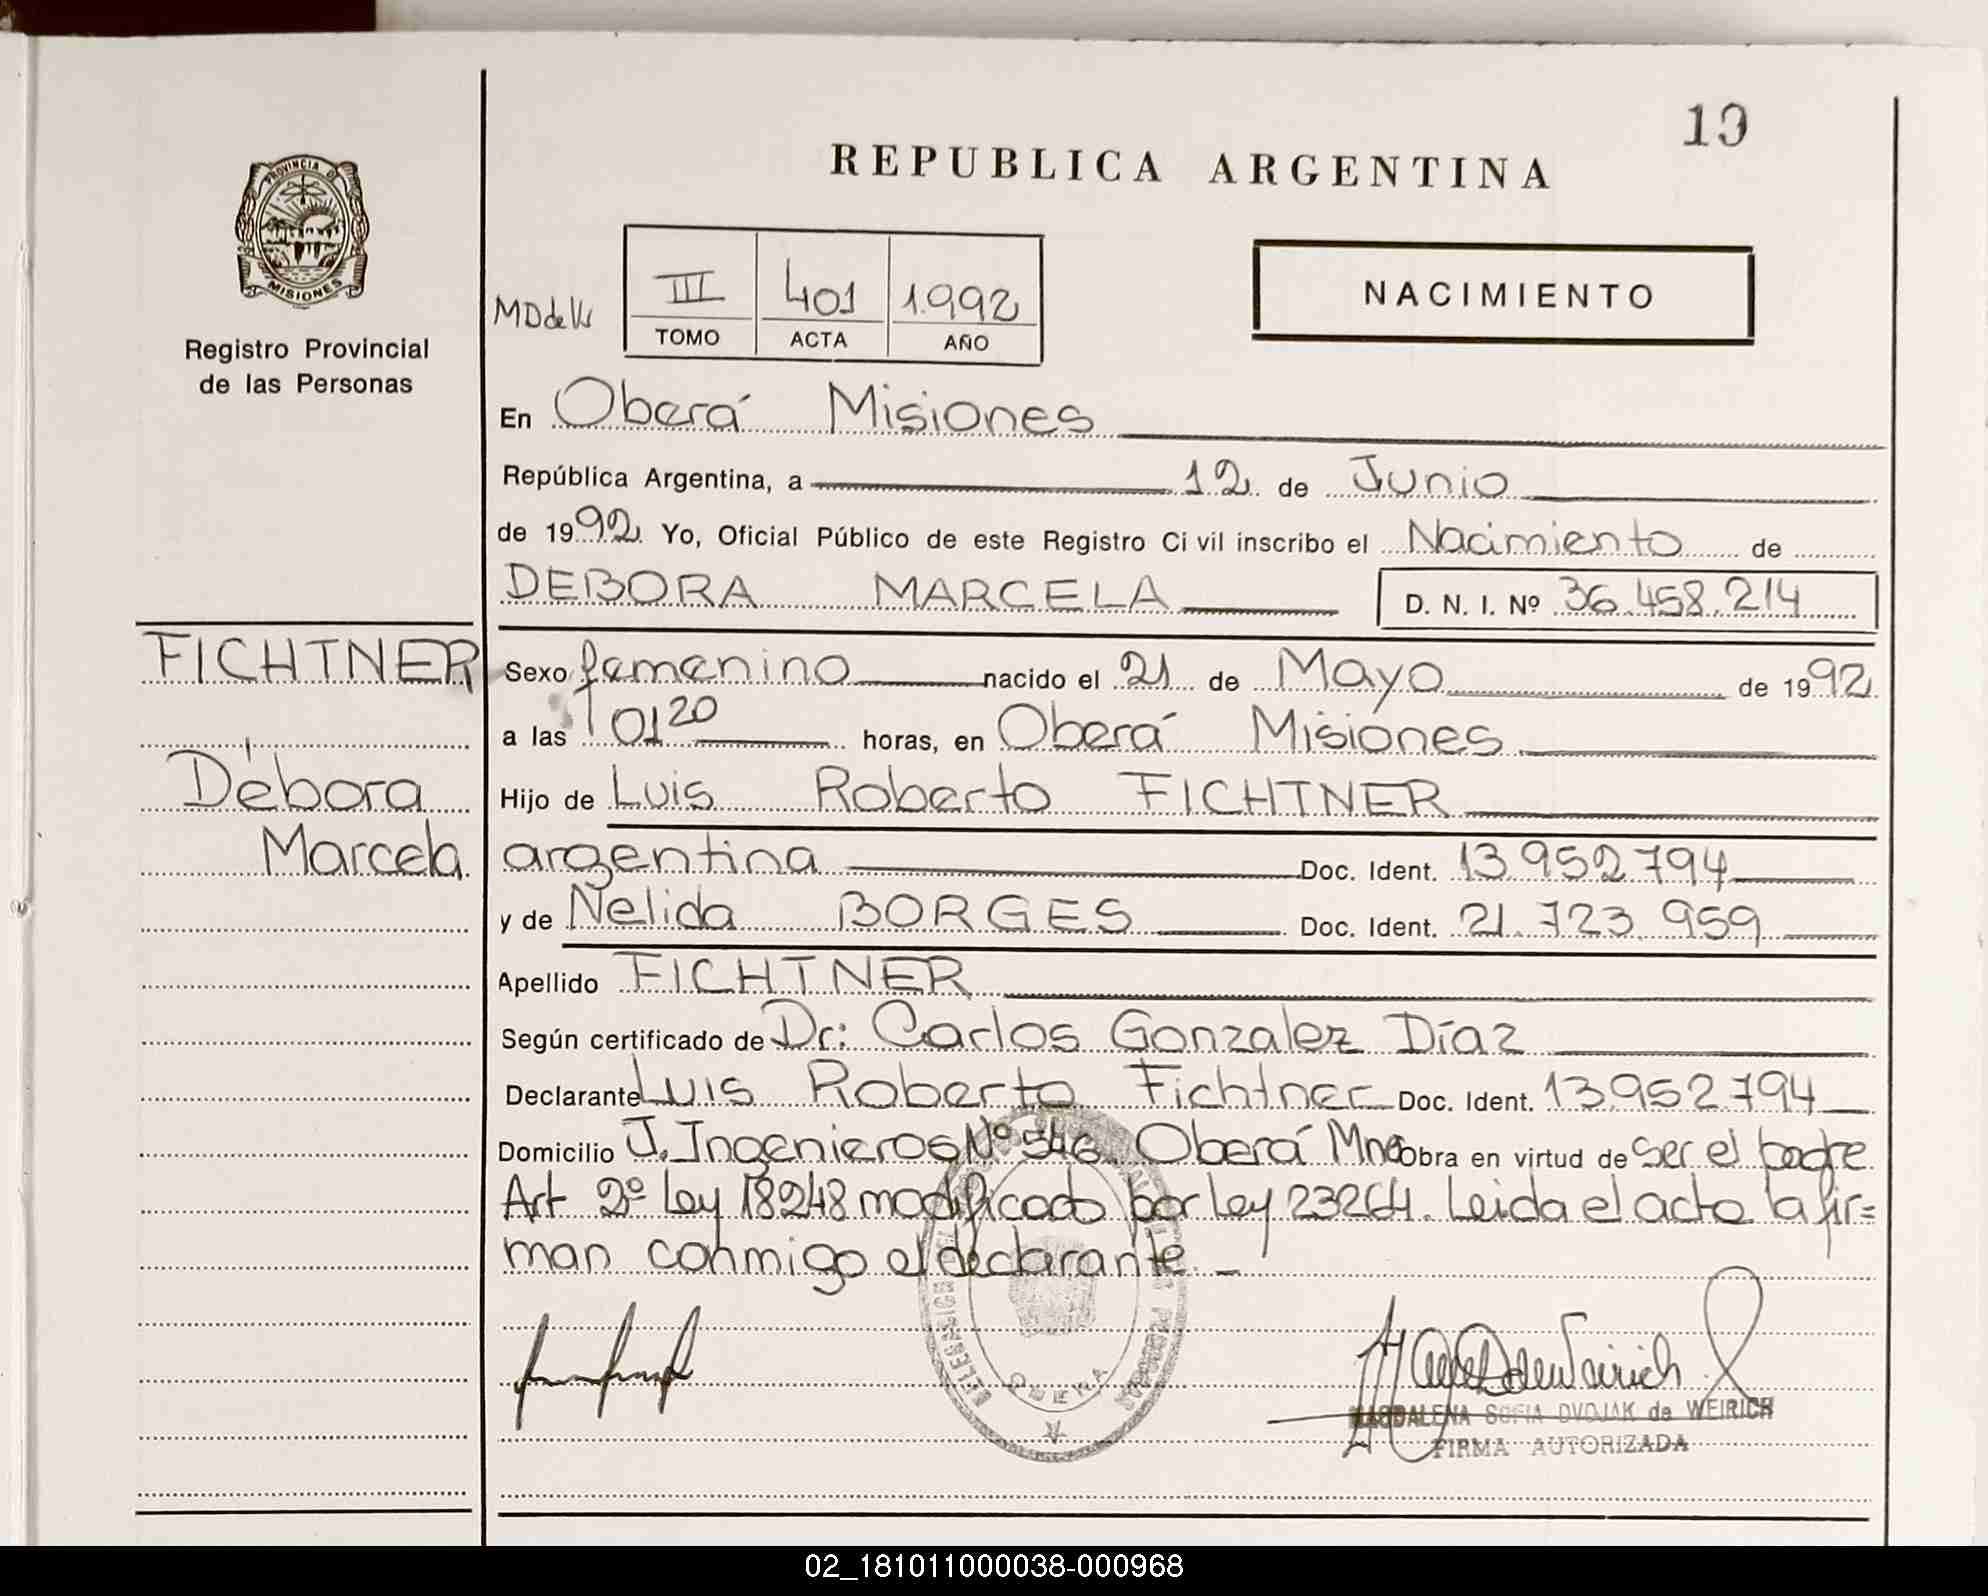 19
REPUBLICA ARGENTINA
PROVINCIA D
MISIONES
Registro Provincial
de las Personas
MDdeW
III 401 1.992
TOMO ACTA AÑO
NACIMIENTO
En Oberá Misiones
República Argentina, a 12 de Junio
de 1992 Yo, Oficial Público de este Registro Ci vil inscribo el Nacimiento de
DEBORA MARCELA D. N. I. Nº 36.458.214
FICHTNER
Débora
Marcela
Sexo femenino nacido el 21 de Mayo de 1992
a las 01 20 horas, en Oberá Misiones
Hijo de Luis Roberto FICHTNER
argentina Doc. Ident. 13.952.794
y de Nelida BORGES Doc. Ident. 21.723.959
Apellido FICHTNER
Según certificado de Dr: Carlos Gonzalez Díaz
Declarante Luis Roberto Fichtner Doc. Ident. 13.952.794
Domicilio J. Ingenieros Nº 546 Oberá Mnes Obra en virtud de ser el padre
Art 2º Ley 18248 modificado por Ley 23264. Leida el acta la fir=
man conmigo el declarante. -
OBERA
MAGDALENA SOFIA DVOJAK de WEIRICH
FIRMA AUTORIZADA
02_181011000038-000968